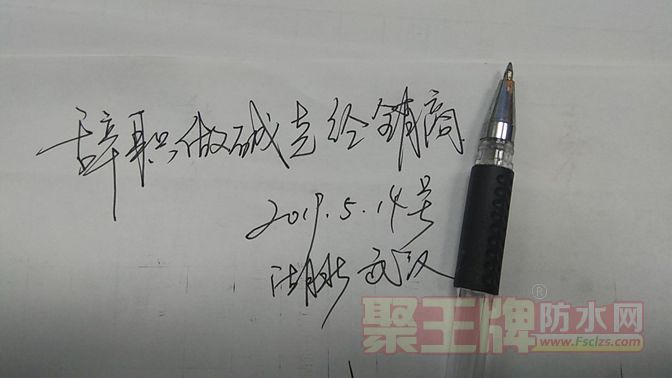 辞职做碱克经销商
2019.5.14号
湖北 武汉
聚王牌®防水网
www.Fsclzs.com